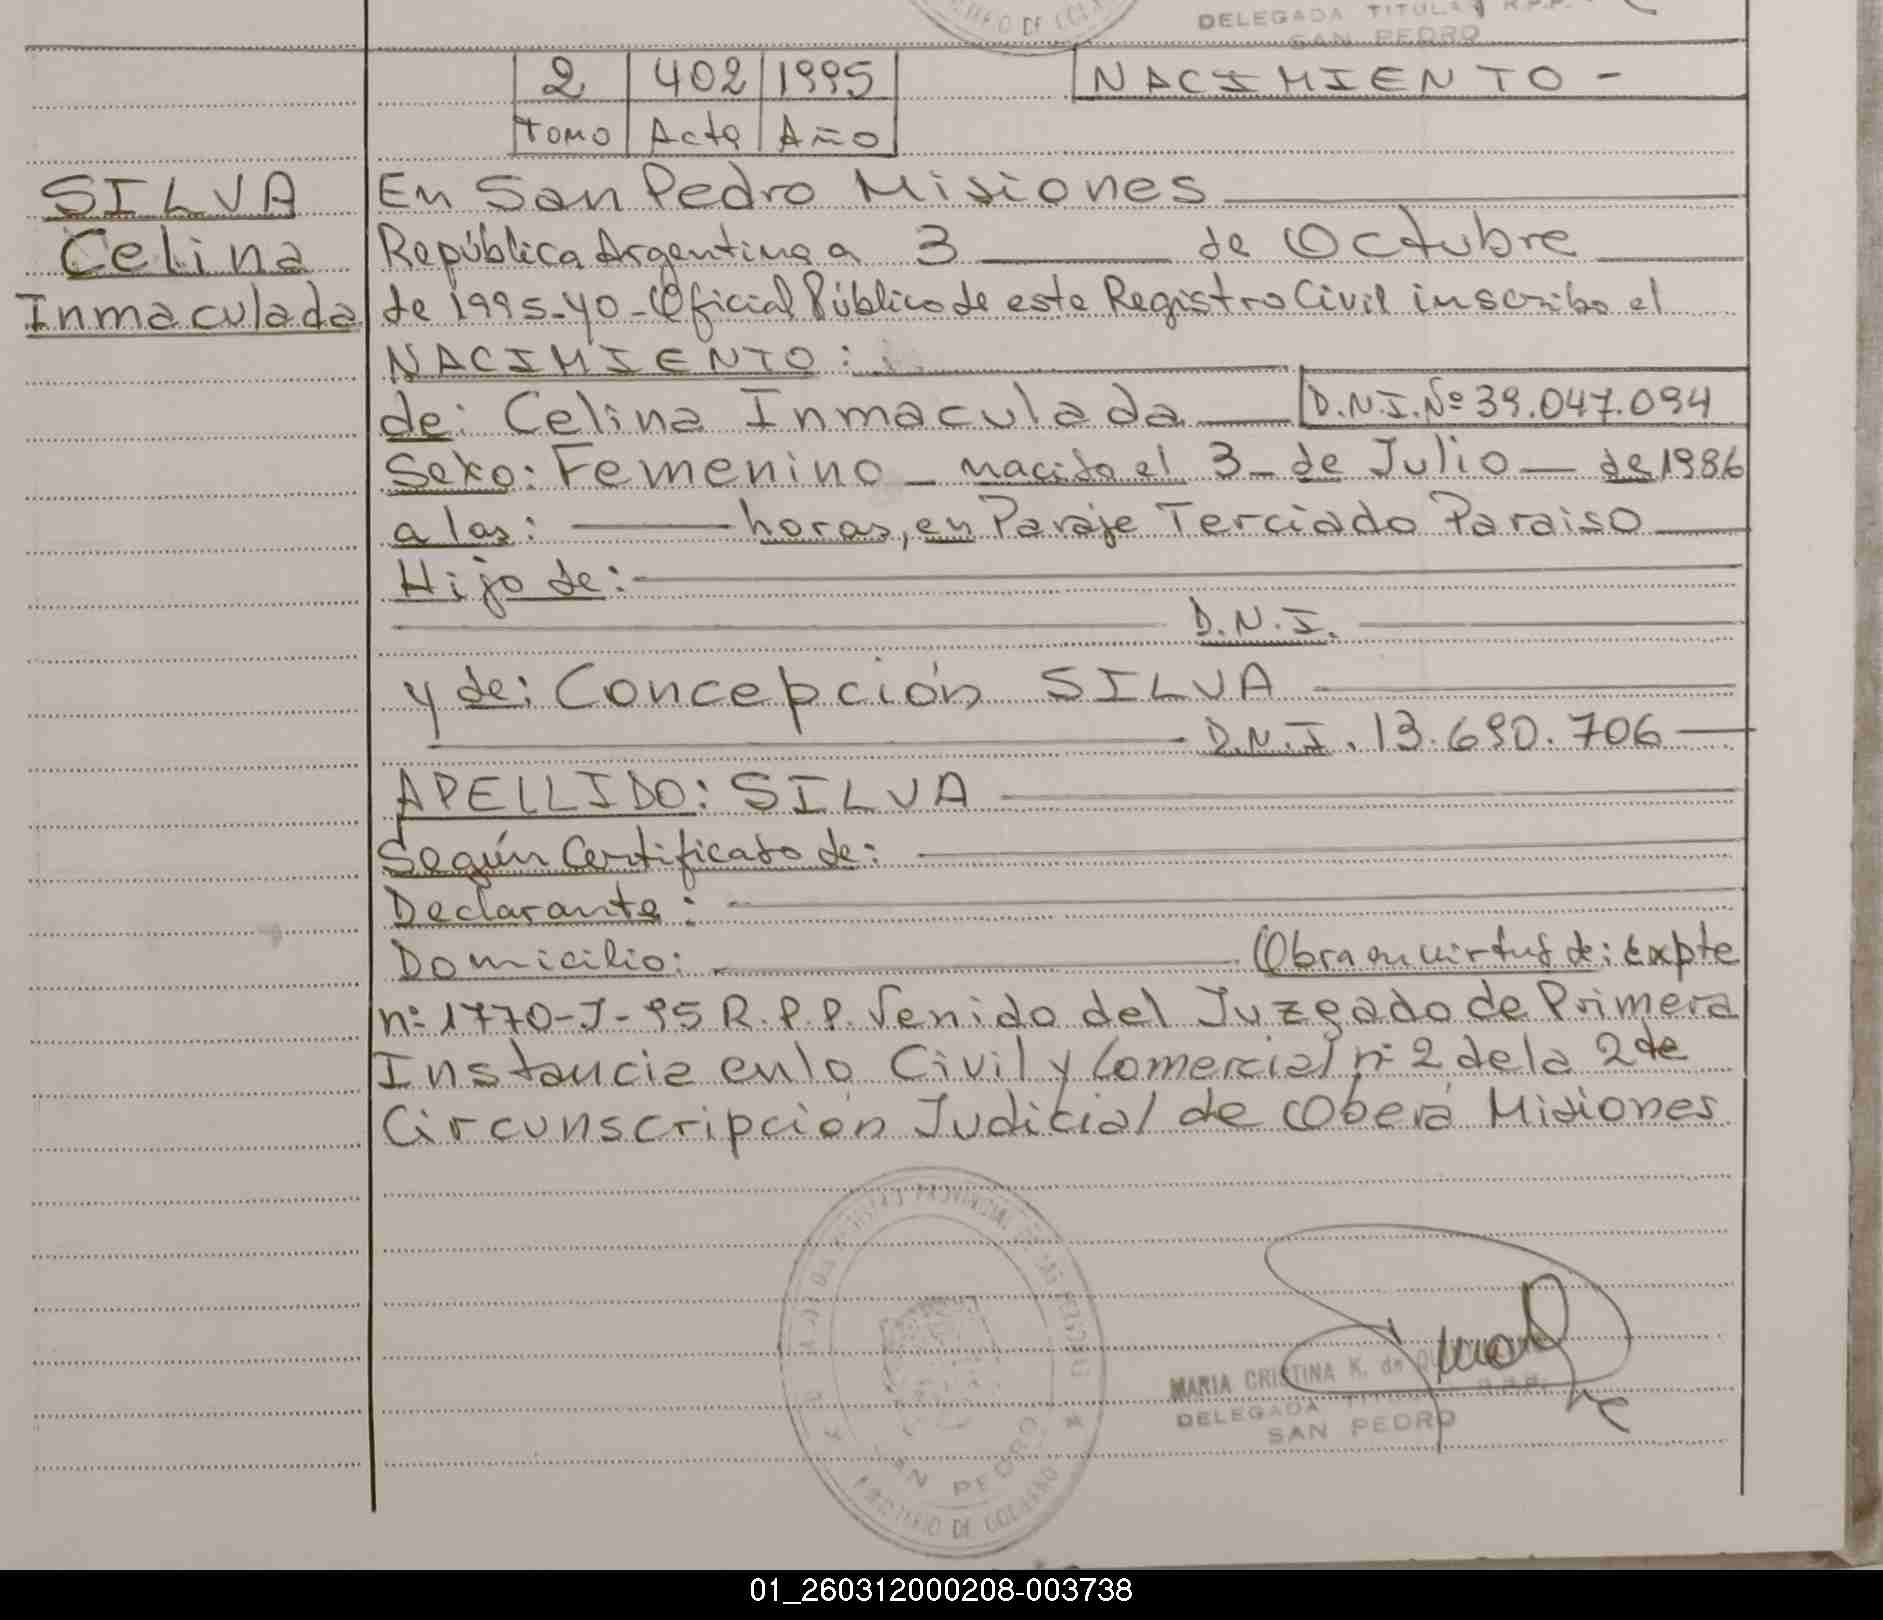 DELEGADA TITULAR R.P.P.
SAN PEDRO
2 402 1995 NACIMIENTO -
Tomo Acta Año
SILVA
Celina
Inmaculada
En San Pedro Misiones
República Argentina a 3 de Octubre
de 1995-yo-Oficial Público de este Registro Civil inscribo el
NACIMIENTO:
de: Celina Inmaculada D.N.I. Nº 39.047.094
Sexo: Femenino - nacido el 3 - de Julio - de 1986
a las: horas, en Paraje Terciado Paraiso
Hijo de:
D.N.I.
y de: Concepción SILVA
D.N.I. 13.690.706
APELLIDO: SILVA
Según Certificado de:
Declarante:
Domicilio: Obra en virtud de: Expte
nº 1770-J-95 R.P.P. Venido del Juzgado de Primera
Instancia en lo Civil y Comercial nº 2 de la 2da
Circunscripción Judicial de Oberá Misiones
MARIA CRISTINA K. de
DELEGADA TITULAR R.P.P.
SAN PEDRO
SAN PEDRO
DE GOBIERNO
01_260312000208-003738